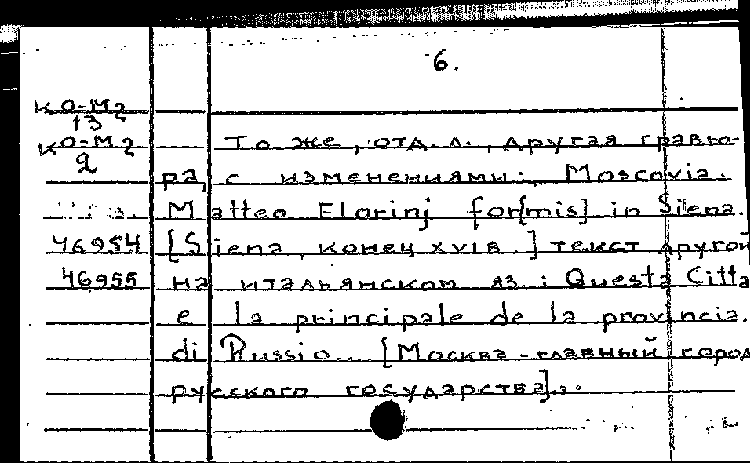 6.
КО-М2
13
КО-М2
9
То же, отд. л., другая гравю-
ра, с изменениями: Moscovia.
Matteo Florinj for[mis] in Siena.
46954 [Siena, конец XVIв.] текст другой
46955 на итальянском яз: Questa Citta
e la principale de la provincia.
di Russio... [Москва - главный город
русского государства].